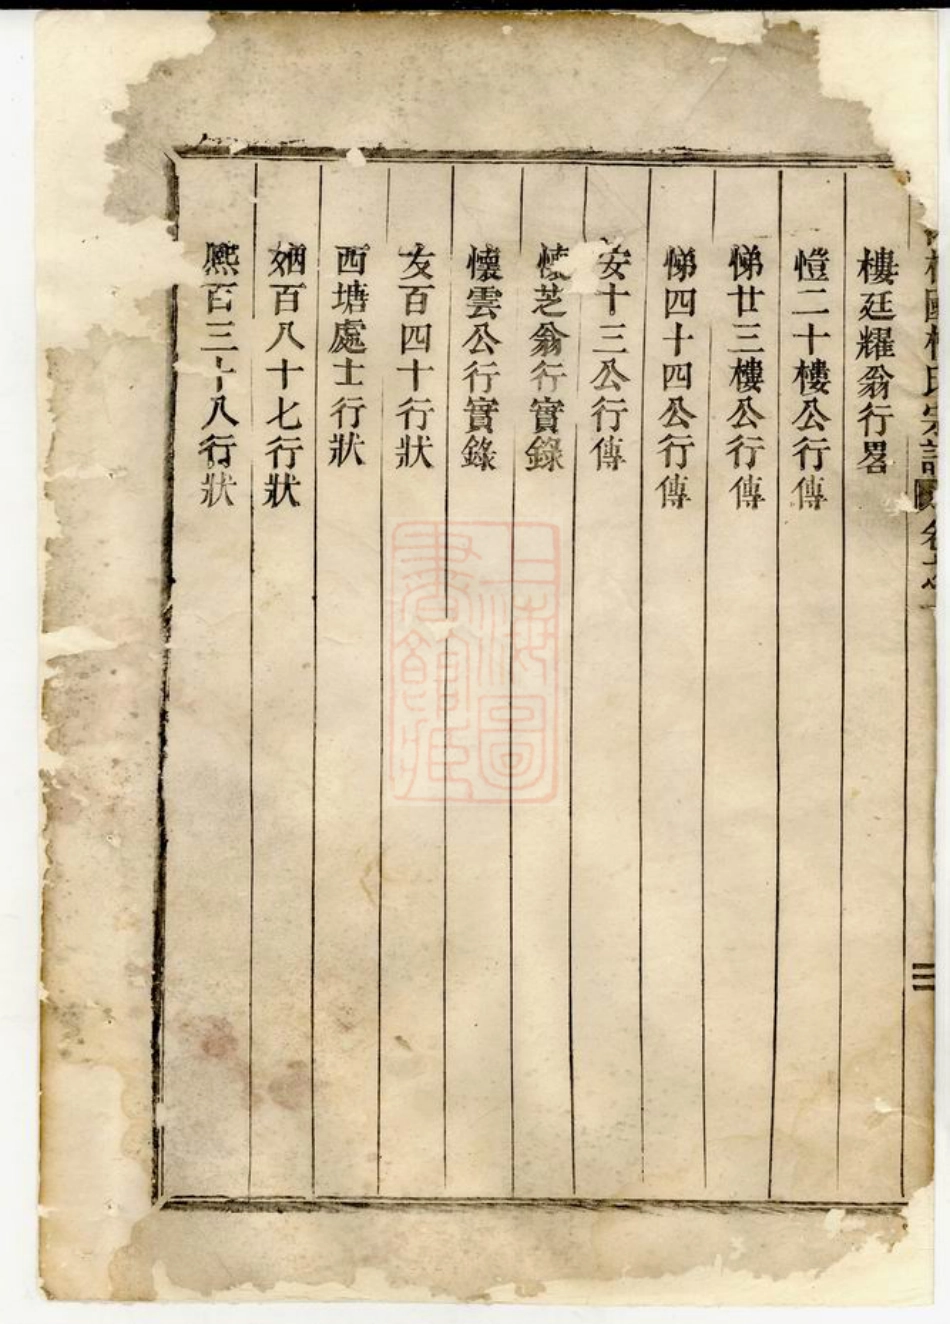 樓廷耀翁行畧
憕二十樓公行傳
悌廿三樓公行傳
悌四十四公行傳
安十三公行傳
懷芝翁行實錄
懷雲公行實錄
友百四十行狀
西塘處士行狀
婣百八十七行狀
熈百三十八行狀
三
上海圖書館藏